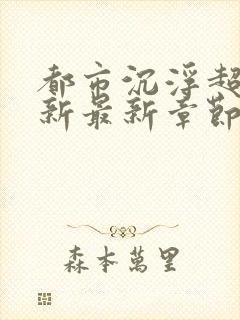 都市沉浮超
新最新章節
森本萬里